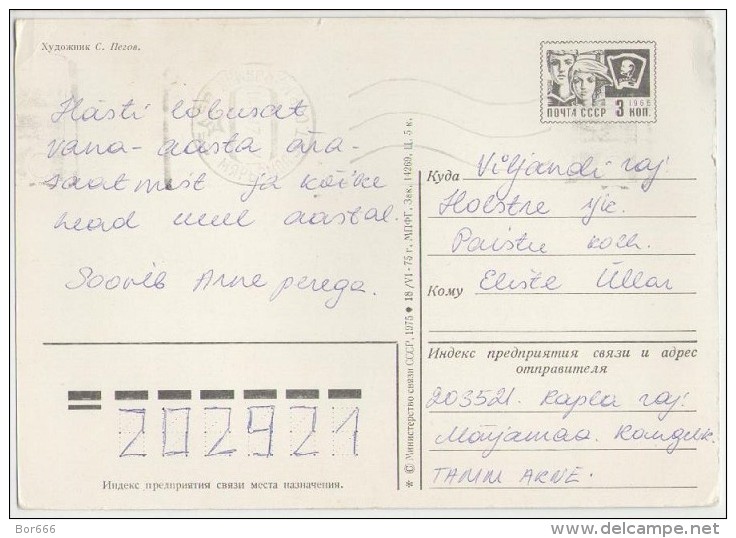 Художник С. Пегов.
ПОЧТА СССР 1966 3 КОП.
Hästi lõbusat
vana-aasta ära-
saatmist ja kõike
head uuel aastal.
Soovib Arne perega.
Куда Viljandi raj.
Holstre sjk.
Paistu kolh.
Кому Eliste Üllar
Индекс предприятия связи и адрес
отправителя
203521. Rapla raj.
Märjamaa.
TAMM ARNE.
202921
Индекс предприятия связи места назначения.
* © Министерство связи СССР, 1975 ● 18/VI-75 г, МПФГ, Зак. 14269, Ц. 5 к.
Bor666